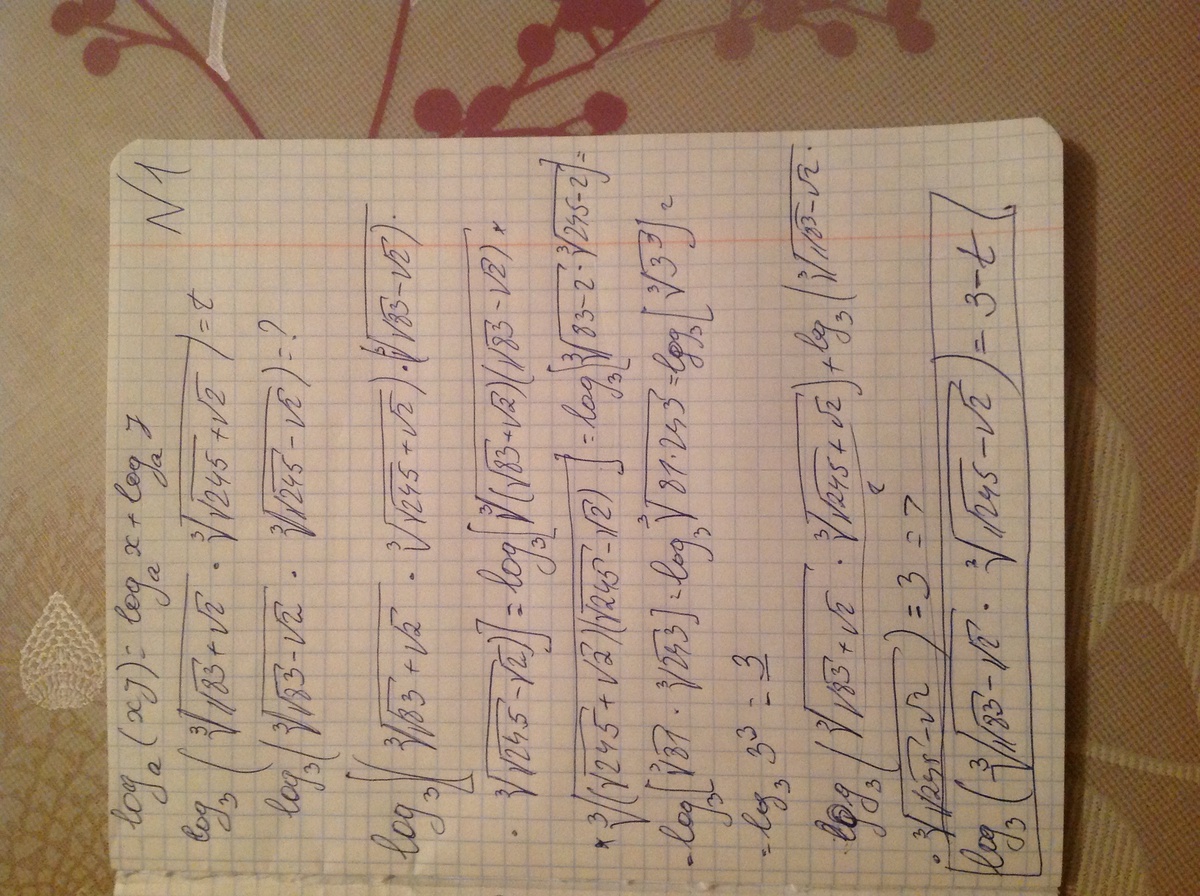 N 1
logₐ(xy) = logₐ x + logₐ y
log₃(∛(√83+√2) · ∛(√245+√2)) = t
log₃(∛(√83-√2) · ∛(√245-√2)) = ?
log₃[(∛(√83+√2) · ∛(√245+√2)) · (∛(√83-√2) ·
· ∛(√245-√2))] = log₃[∛((√83+√2)(√83-√2)) ×
× ∛((√245+√2)(√245-√2))] = log₃[∛(83-2) · ∛(245-2)] =
= log₃[∛81 · ∛243] = log₃ ∛(81·243) = log₃[∛3⁹] =
= log₃ 3³ = 3
log₃(∛(√83+√2) · ∛(√245+√2)) + log₃(∛(√83-√2) ·
· ∛(√245-√2)) = 3 =>
log₃(∛(√83-√2) · ∛(√245-√2)) = 3-t